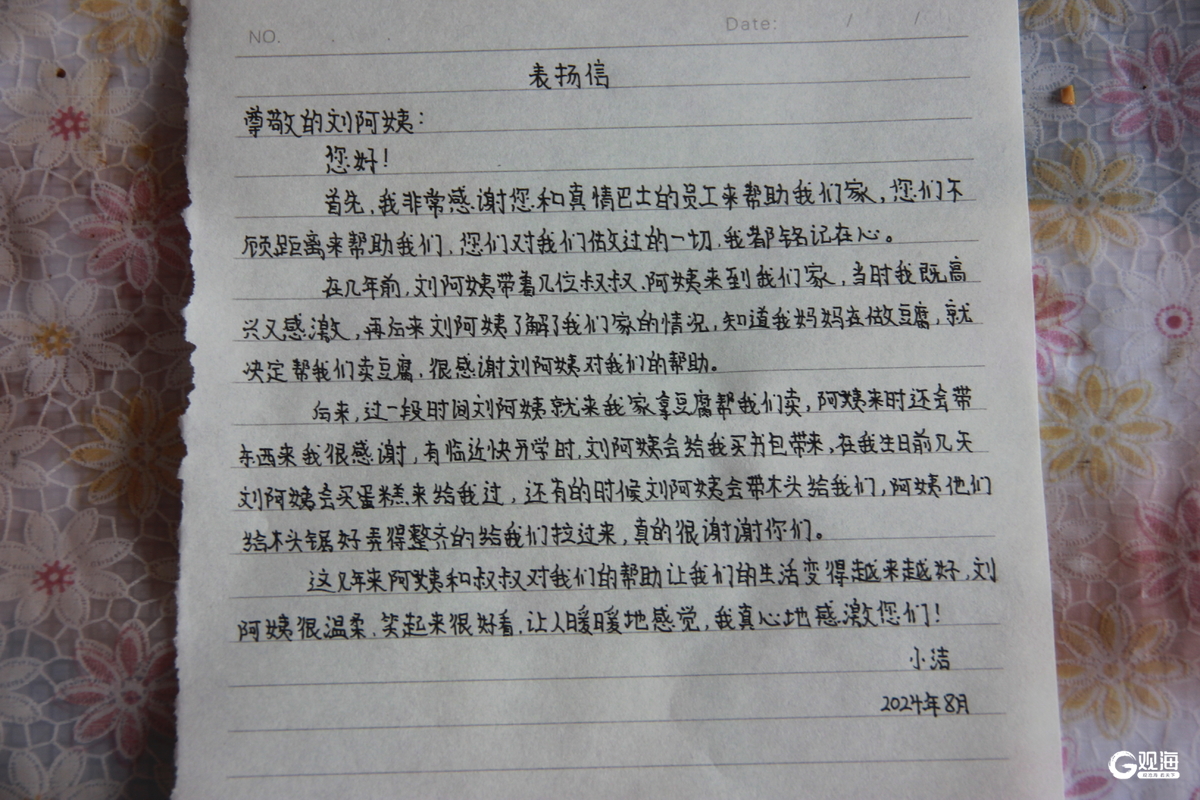 NO.
Date: / /
表扬信
尊敬的刘阿姨:
您好!
首先,我非常感谢您和真情巴士的员工来帮助我们家,您们不
顾距离来帮助我们,您们对我们做过的一切,我都铭记在心。
在几年前,刘阿姨带着几位叔叔、阿姨来到我们家,当时我既高
兴又感激,再后来刘阿姨了解了我们家的情况,知道我妈妈在做豆腐,就
决定帮我们卖豆腐,很感谢刘阿姨对我们的帮助。
后来,过一段时间刘阿姨就来我家拿豆腐帮我们卖,阿姨来时还会带
东西来我很感谢,有临近快开学时,刘阿姨会给我买书包带来,在我生日前几天
刘阿姨会买蛋糕来给我过,还有的时候刘阿姨会带木头给我们,阿姨他们
给木头锯好弄得整齐的给我们拉过来,真的很谢谢你们。
这几年来阿姨和叔叔对我们的帮助让我们的生活变得越来越好,刘
阿姨很温柔,笑起来很好看,让人暖暖地感觉,我真心地感激您们!
小洁
2024年8月
G观海